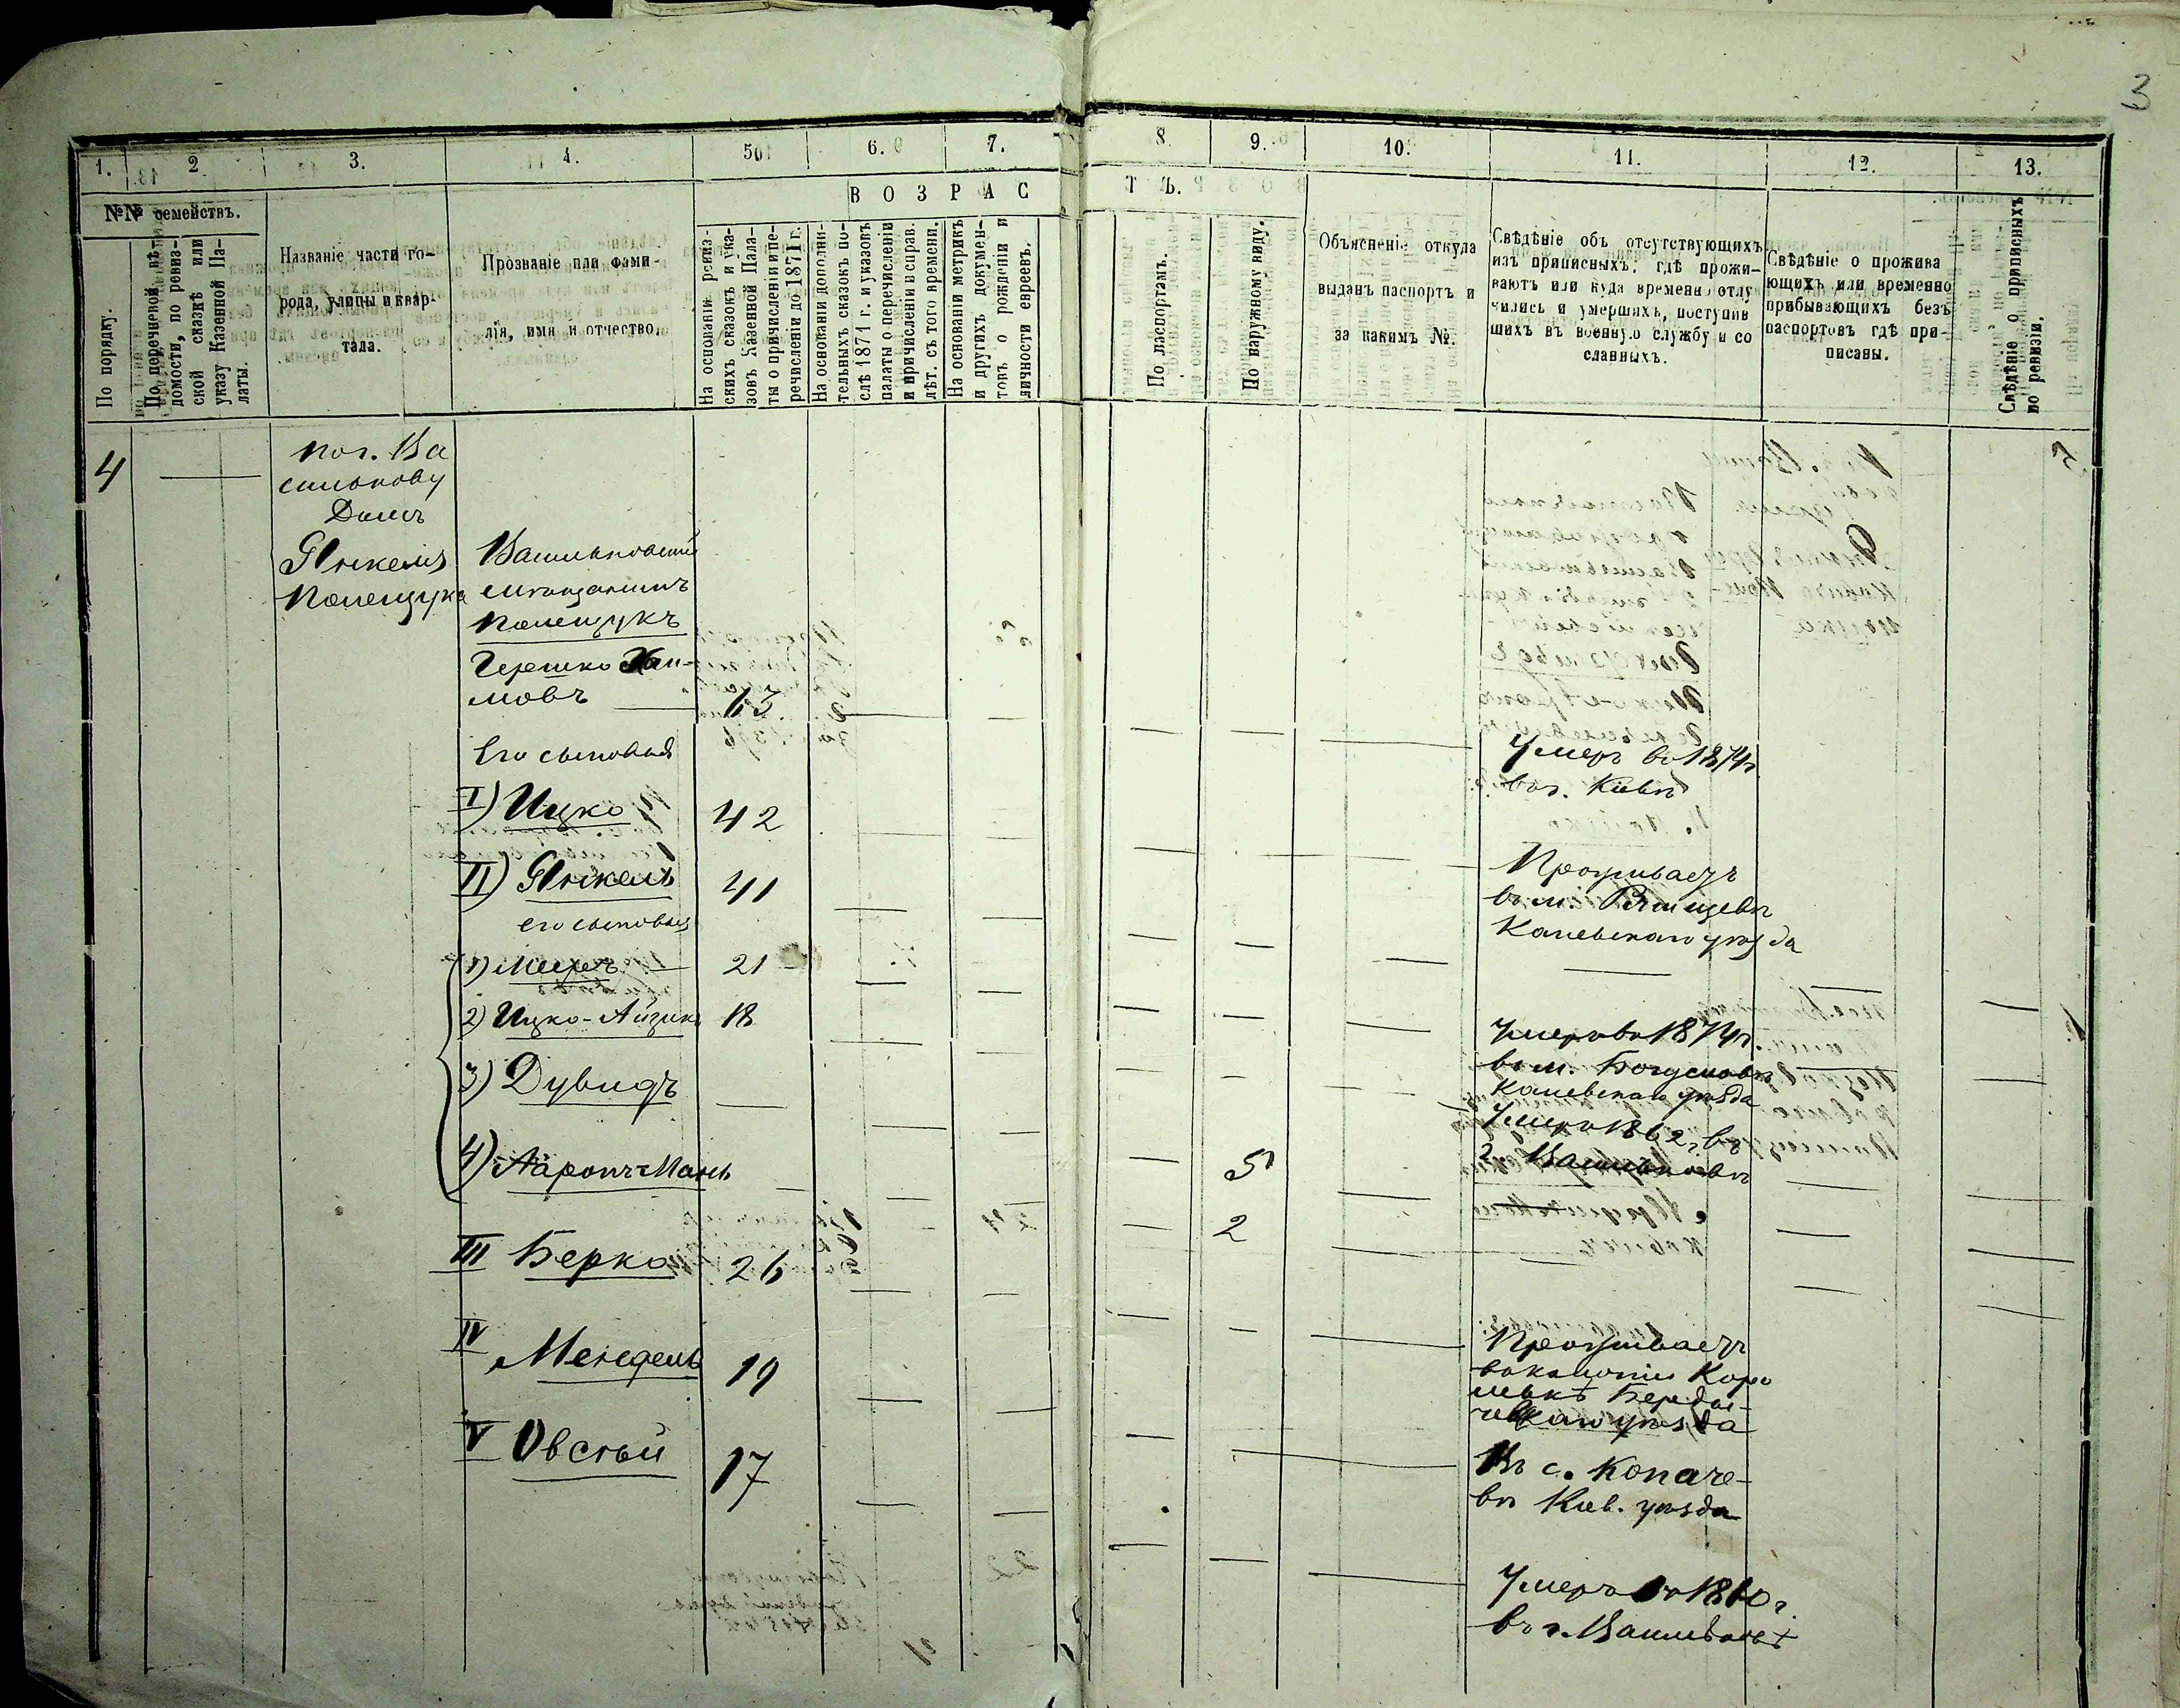 3
1. 2. 3. 4. 5. 6. 7. 8. 9. 10. 11. 12. 13.
В О З Р А С Т Ъ.
№№ семействъ.
По порядку.
По перечневой вѣ-
домости, по ревиз-
ской сказкѣ или
указу Казенной Па-
латы.
Названіе части го-
рода, улицы и квар-
тала.
Прозваніе или фами-
лія, имя и отчество.
На основаніи ревиз-
скихъ сказокъ и ука-
зовъ Казенной Пала-
ты о причисленіи и пе-
речисленіи до 1871 г.
На основаніи дополни-
тельныхъ сказокъ по-
слѣ 1871 г. и указовъ
палаты о перечисленіи
и причисленіи и справ.
лѣт. съ того времени.
На основаніи метрикъ
и другихъ докумен-
товъ о рожденіи и
личности евреевъ.
По паспортамъ.
По наружному виду.
Объясненіе откуда
выданъ паспортъ и
за какимъ №.
Свѣдѣніе объ отсутствующихъ
изъ приписныхъ: гдѣ прожи-
ваютъ или куда временно отлу
чились и умершихъ, поступив
шихъ въ военную службу и со
сланныхъ.
Свѣдѣніе о прожива
ющихъ или временно
прибывающихъ безъ
паспортовъ гдѣ при-
писаны.
Свѣдѣніе о приписныхъ
по ревизіи.
4
по г. Ва
силькову
Домъ
Янкеля
Полещука
Васильковскій
мѣщанинъ
Полещукъ
Гершко Хаи-
мовъ 63
Его сыновья
Умеръ въ 1874 г.
въ г. Кіевѣ
I) Ицко 42
Проживаетъ
въ м. Ржищевѣ
Каневскаго уѣзда
II) Янкель 41
его сыновья
1) Мееръ 21
2) Ицко-Айзикъ 18
Умеръ въ 1874 г.
въ м. Богуславѣ
Каневскаго уѣзда
3) Дувидъ
Умеръ 1862 г. въ
г. Васильковѣ
4) Ааронъ-Мань
5
2
III Берко 26
Проживаетъ
Бердич-
евскаго уѣзда
IV Мендель 19
Въ с. Копаче-
вѣ Кіев. уѣзда
V Овсѣй 17
Умеръ въ 1860 г.
въ г. Васильковѣ